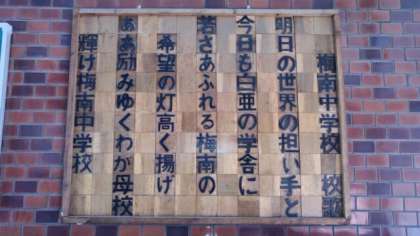 梅南中学校 校歌
明日の世界の担い手と
今日も白亜の学舎に
若さあふれる梅南の
希望の灯高く揚げ
あゝ励みゆくわが母校
輝け梅南中学校